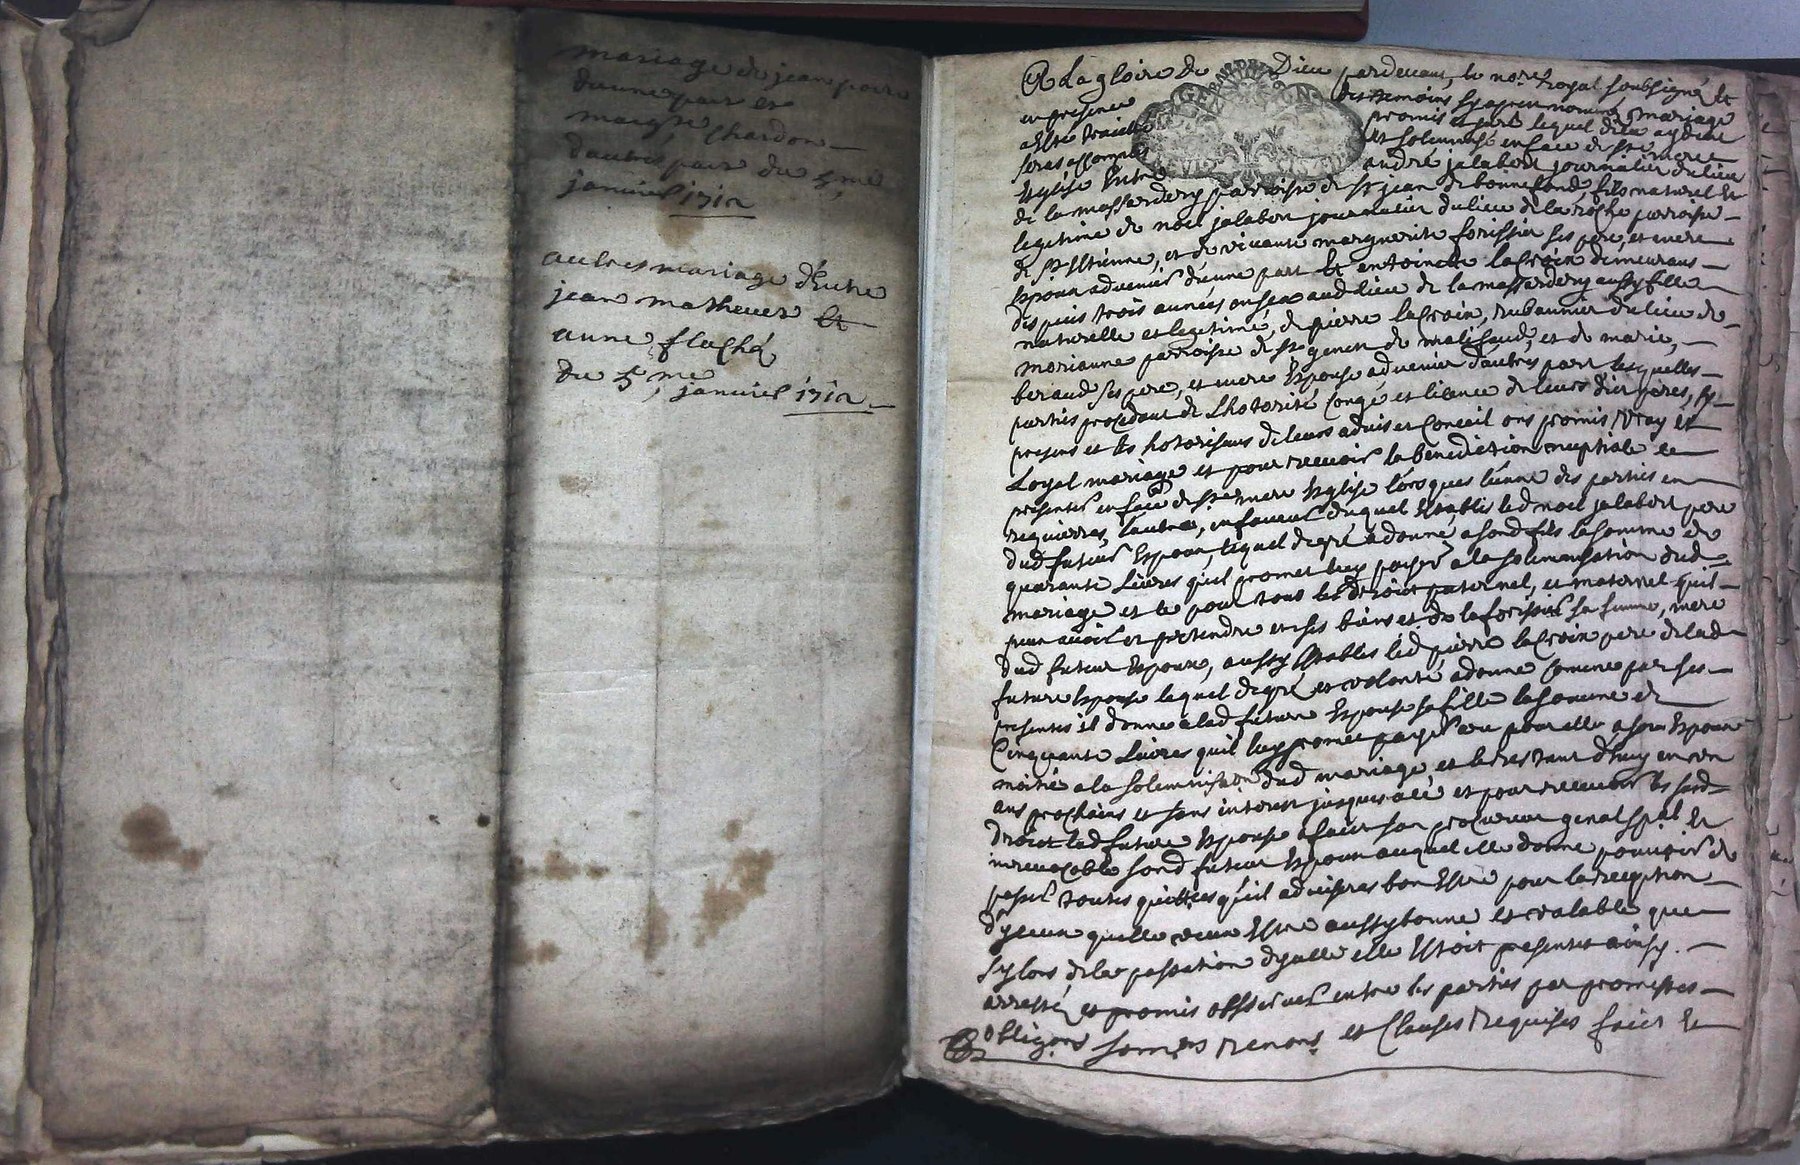 mariage de jean poire
dune part et
margte chardon
dautre part du 5me
janvier 1712
autres mariage d'Entre
jean matheuer Et
anne flaché
du 5me janvier 1712
A La gloire de Dieu pardevant le nore Royal soubsigné Et
en presence des temoins sy apres nommés mariage
a Esté traicté promis a juré lequel dieu aydent
seras accomply et solemnisé en face de ste mere
Esglise Entre andré jalabert journalier du lieu
de la massardery parroisse de st jean de bonnefond, fils naturel Et
legitime de noel jalabert journalier du lieu de la roche parroisse
de st Estienne, et de vivante marguerite forissier ses pere, et mere
Espoux advenir d'une part Et antoinette lacroix demeurans
despuis trois années en sea aud lieu de la massardery aussy fille
naturelle et legitime, de pierre lacroix, rubannier du lieu de
morianne parroisse de st genest de malifaud, et de marie,
beraud ses pere, et mere Espouse advenir d'autre part lesquelles
parties procedant de Lhotorité congé et licence de leurs dict peres, sy
presens et les hotorisans de leurs advis et Conceil ont promis Vray Et
Loyal mariage et pour recevoir la benediction nuptiale se
presenter en face de ste mere Esglise lorsques l'unne des parties en
requierras, l'autre, en faveur duquel Establis led noel jalabert pere
dud futeur Espoux, lequel degré a donné a sond fils la somme de
quarante Livres qu'il promet luy payer a la solemnisation dud
mariage et le pour tous les droict paternel, et maternel quil
peux avoir et pretendre en ses biens et de la forissier sa femme, mere
dud futeur Espoux, aussy Establis led pierre lacroix pere de lad
future Espouse lequel degré et volonté a donné comme par ses
presentes il donne a lad future Espouse sa fille la somme de
Cinquante Livres quil luy promet payer ou pour elle a son Espoux
moitié a la solemnisaon dud mariage, et le restant d'huy en un
ans prochains et sans interest jusques a ce et pour recevoir les susd
droict lad future Espouse a faict son procureur genal spal Et
inrevocable sond futeur Espoux auquel elle donne pouvoir de
passer toutes quittces qu'il adviseras bon Estre pour la reception
d'yceux quelle veux Estre aussy bonne Et valable que
sy lors de la passation dycelle elle Estoit presente ainsy.
arresté, et promis observer entre les parties par promesses
obligons somions renons et Clauses Requises faict Et